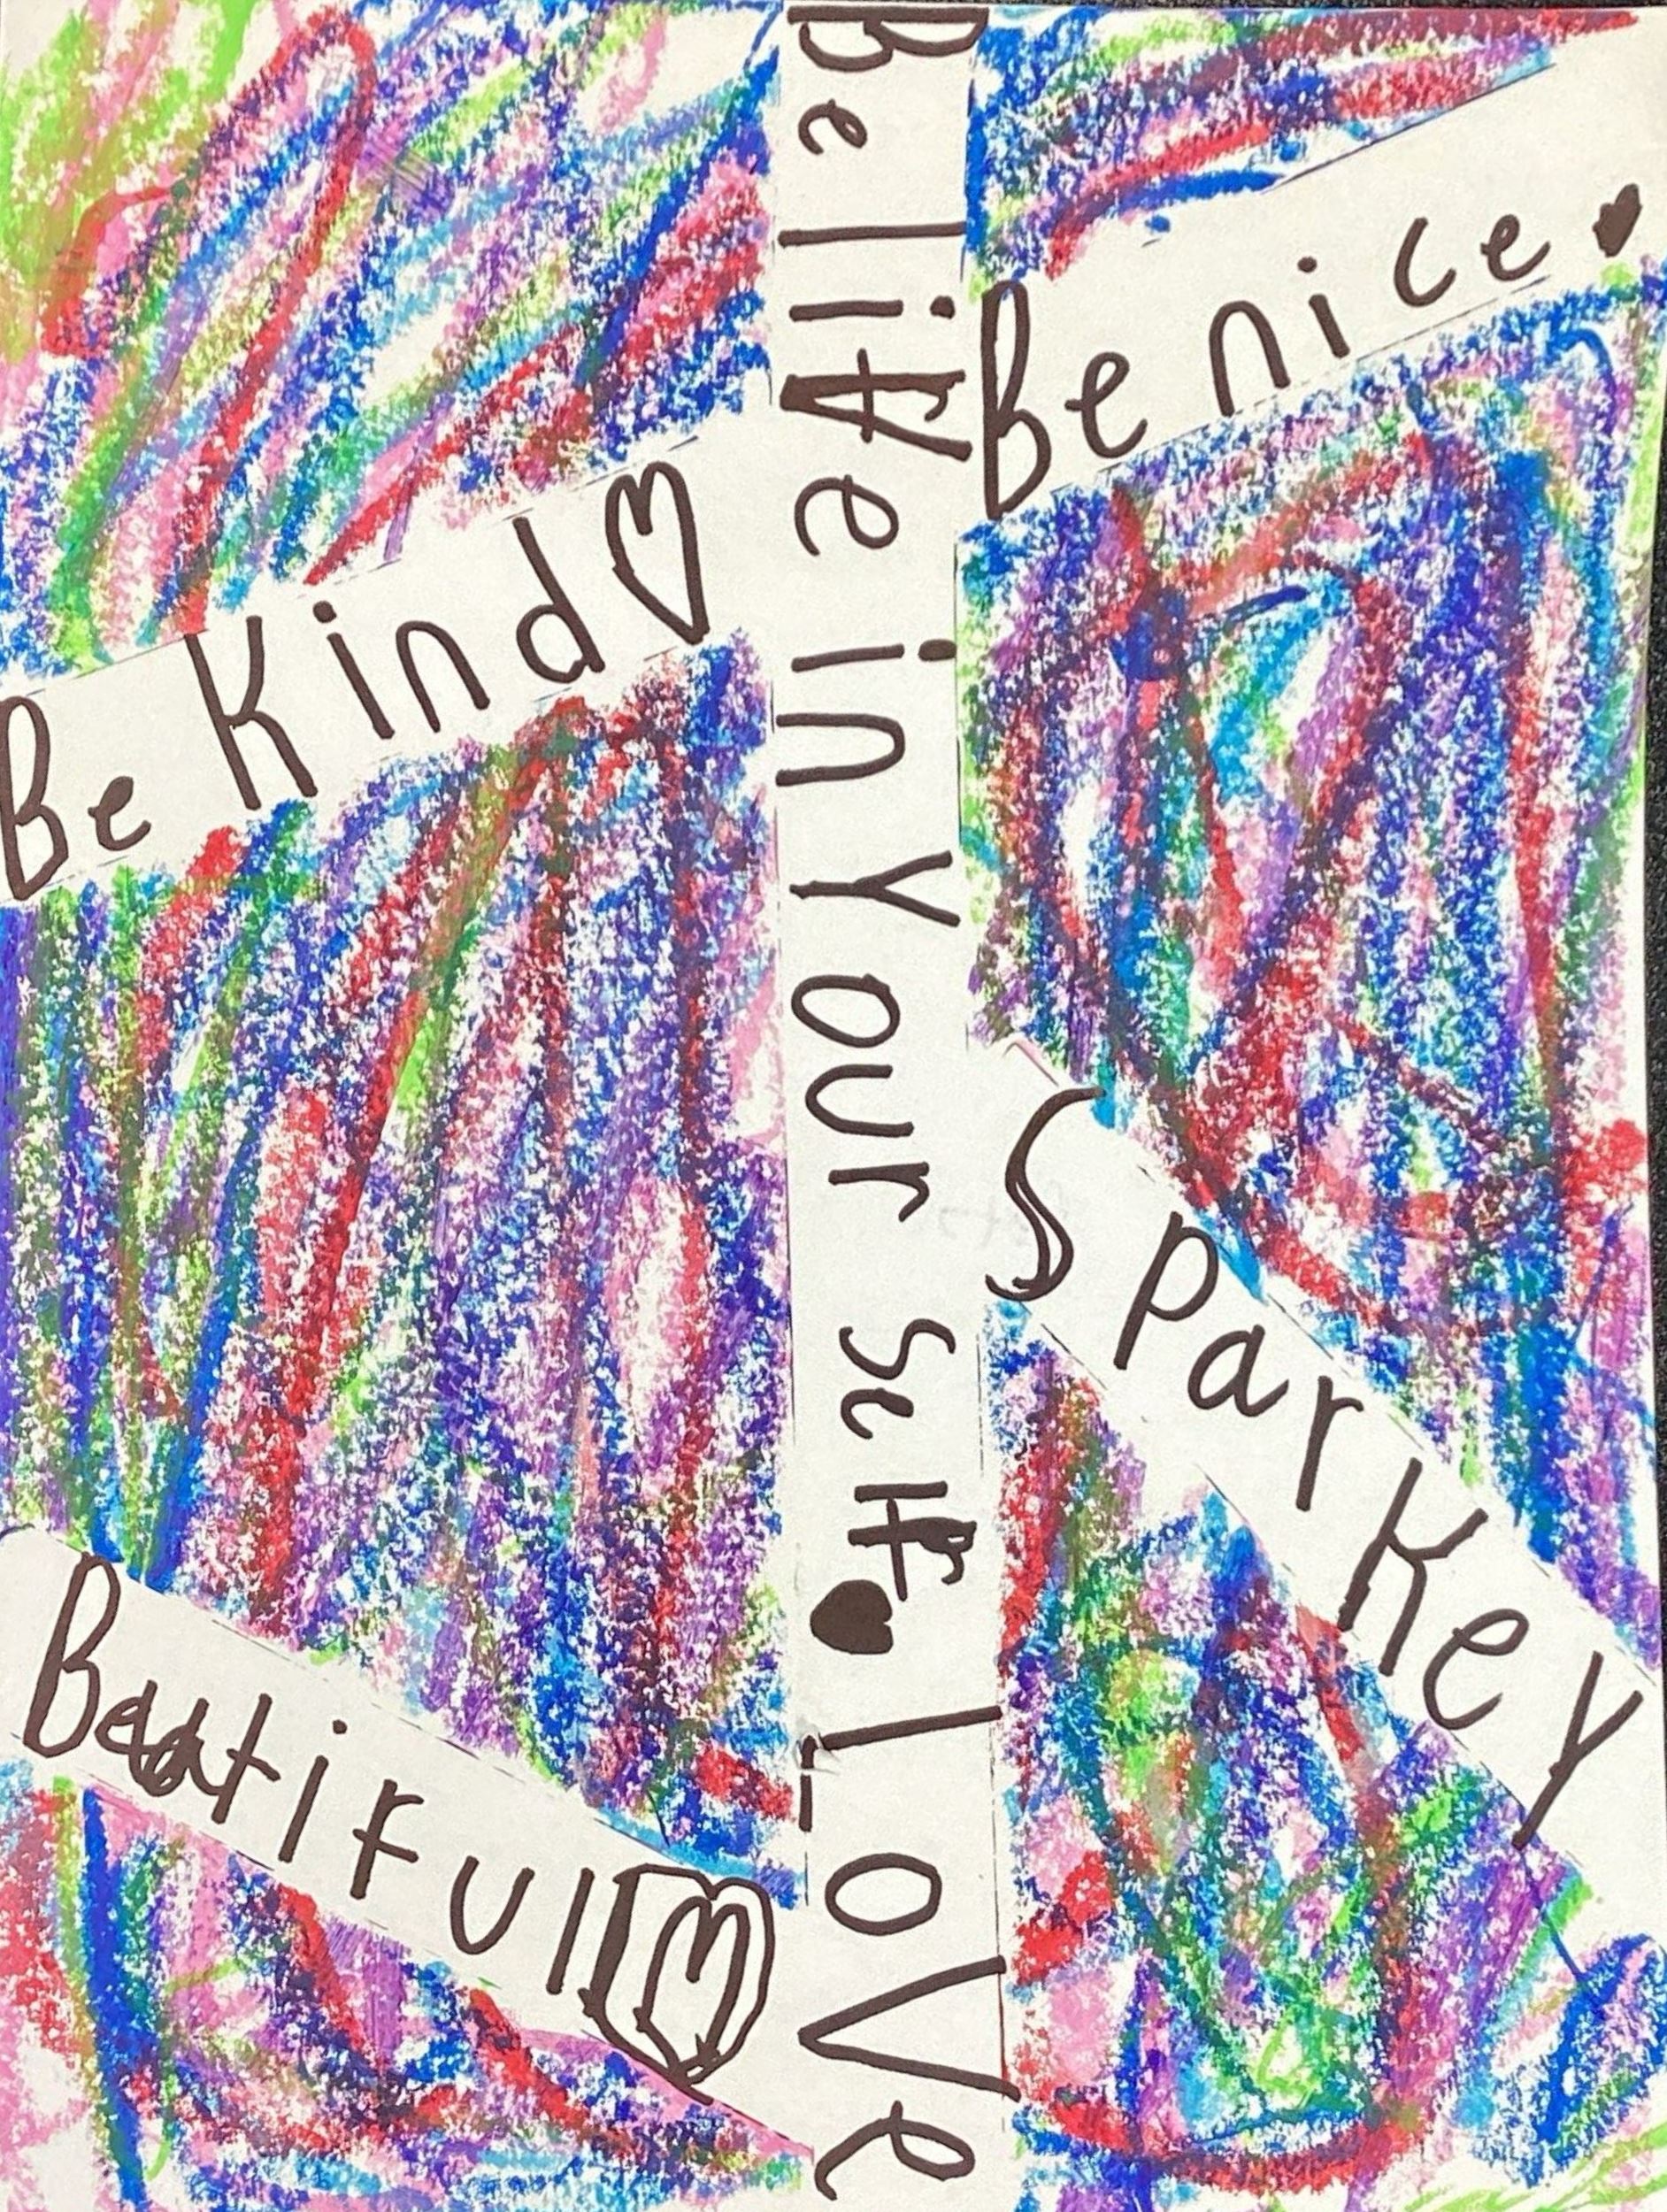 Be nice
Be Kind
Be like in Your self Love
Sparkey
Beatiful